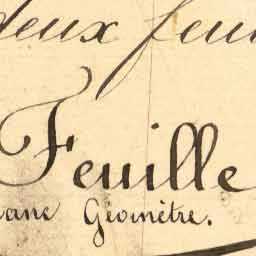 deux feui
Feuille
ane Géomètre.